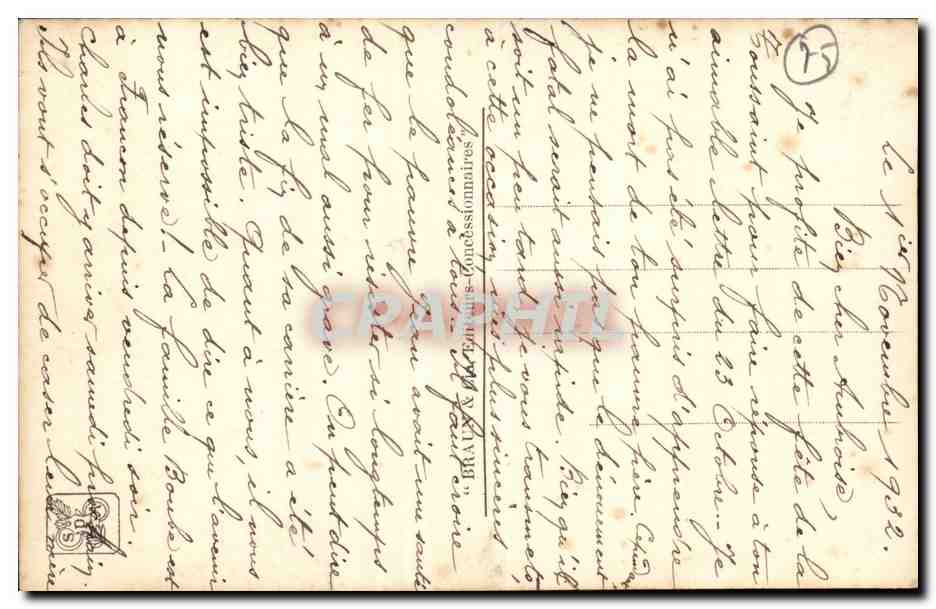 75
Le 1er Novembre 1932.
Bien cher Ambroise,
Je profite de cette fête de la
Toussaint pour faire réponse à ton
aimable lettre du 23 Octobre - Je
n'ai pas été surpris d'apprendre
la mort de ton pauvre frère. Cependant
je ne pensais pas que le dénouement
fatal serait aussi rapide. Bien qu'il
soit un peu tard, je vous transmets
à cette occasion mes plus sincères
condoléances à tous. Il faut croire
que le pauvre Jean avait une santé
de fer pour résister si longtemps
à un mal aussi grave. On peut dire
que la fin de sa carrière a été
bien triste. Quant à nous, il nous
est impossible de dire ce que l'avenir
nous réserve! - la famille Bouhe est
à Francon depuis vendredi soir.
Charles doit y arriver samedi prochain.
Ils vont s'occuper de caser leur mère
"BRAUN & Cie Editeurs-Concessionnaires"
CPAPHIL